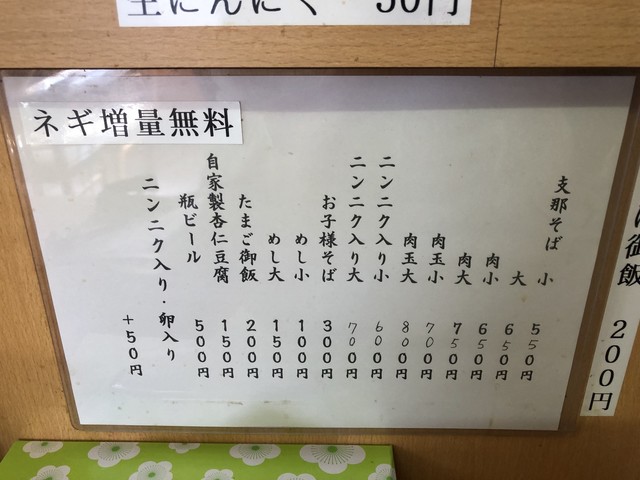 生にんにく 50円
ネギ増量無料
支那そば 小 550円
大 650円
肉小 650円
肉大 750円
肉玉小 700円
肉玉大 800円
ニンニク入り小 600円
ニンニク入り大 700円
お子様そば 300円
めし小 100円
めし大 150円
たまご御飯 200円
自家製杏仁豆腐 150円
瓶ビール 500円
ニンニク入り・卵入り +50円
御飯 200円